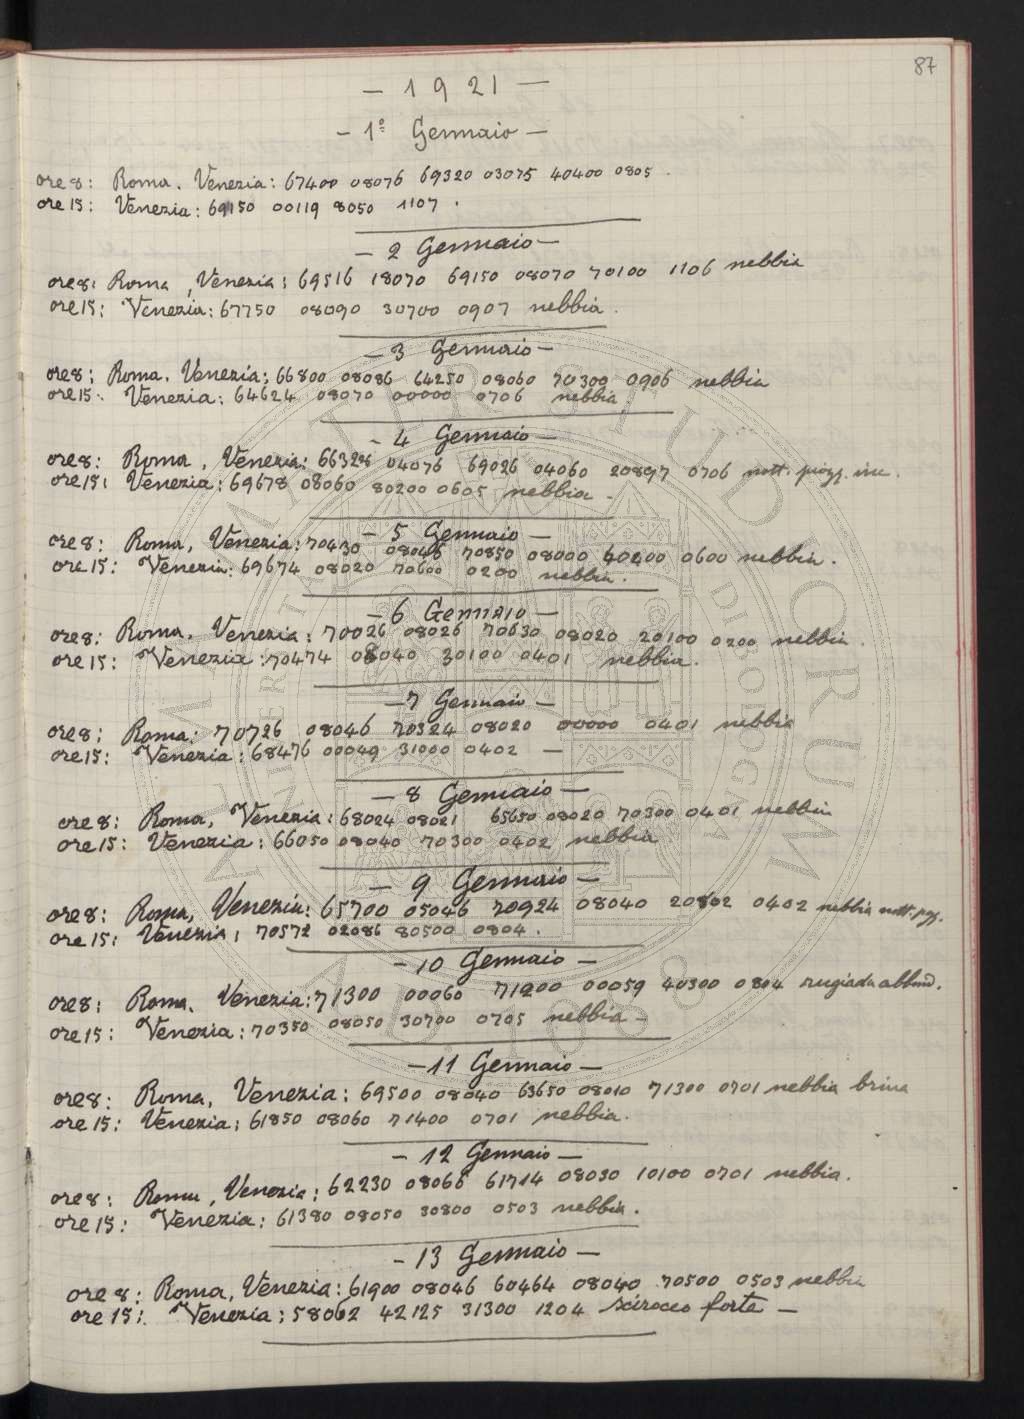 87
— 1921 —
— 1° Gennaio —
ore 8: Roma. Venezia: 67400 08076 69320 03075 40400 0805.
ore 15: Venezia: 69150 00119 8050 1107.
— 2 Gennaio —
ore 8: Roma, Venezia: 69516 18070 69150 08070 70100 1106 nebbia
ore 15: Venezia: 67750 08090 30700 0907 nebbia.
— 3 Gennaio —
ore 8: Roma. Venezia: 66800 08086 64250 08060 70300 0906 nebbia
ore 15: Venezia: 64624 08070 00000 0706 nebbia
— 4 Gennaio —
ore 8: Roma, Venezia: 66328 04076 69026 04060 20897 0706 nott. piogg. inc.
ore 15: Venezia: 69678 08060 80200 0605 nebbia.
— 5 Gennaio —
ore 8: Roma, Venezia: 70430 08046 70850 08000 60200 0600 nebbia.
ore 15: Venezia: 69674 08020 70600 0200 nebbia.
— 6 Gennaio —
ore 8: Roma. Venezia: 70026 08026 70630 08020 20100 0200 nebbia.
ore 15: Venezia: 70474 08040 30100 0401 nebbia.
— 7 Gennaio —
ore 8: Roma: 70726 08046 70324 08020 00000 0401 nebbia
ore 15: Venezia: 68476 00049 31000 0402 —
— 8 Gennaio —
ore 8: Roma, Venezia: 68024 08021 65650 08020 70300 0401 nebbia
ore 15: Venezia: 66050 08040 70300 0402 nebbia
— 9 Gennaio —
ore 8: Roma, Venezia: 65700 05046 70924 08040 20802 0402 nebbia nott. pgg.
ore 15: Venezia: 70572 02086 80500 0804.
— 10 Gennaio —
ore 8: Roma. Venezia: 71300 00060 71200 00059 40300 0804 rugiada abbond.
ore 15: Venezia: 70350 08050 30700 0705 nebbia —
— 11 Gennaio —
ore 8: Roma, Venezia: 69500 08040 63650 08010 71300 0701 nebbia brina
ore 15: Venezia: 61850 08060 71400 0701 nebbia.
— 12 Gennaio —
ore 8: Roma, Venezia: 62230 08066 61714 08030 10100 0701 nebbia.
ore 15: Venezia: 61380 08050 30800 0503 nebbia.
— 13 Gennaio —
ore 8: Roma, Venezia: 61900 08046 60464 08040 70500 0503 nebbia
ore 15: Venezia: 58062 42125 31300 1204 scirocco forte —